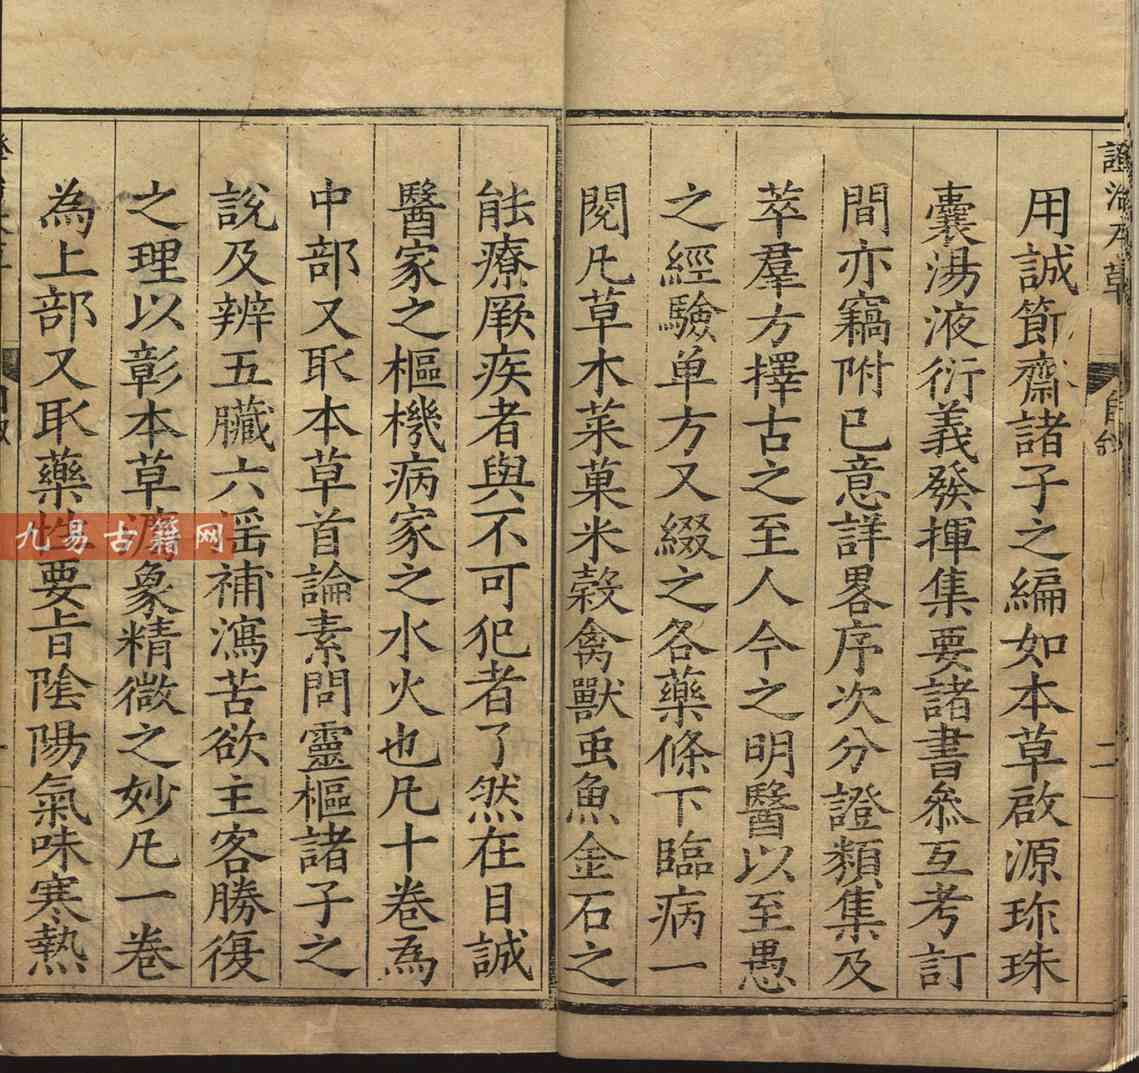 證治本草
自敘
二
用誠節齋諸子之編如本草啟源珎珠
囊湯液衍義發揮集要諸書叅互考訂
間亦竊附已意詳畧序次分證類集及
萃羣方擇古之至人今之明醫以至愚
之經驗单方又綴之各藥條下臨病一
閱凡草木菜菓米榖禽獸虫魚金石之
能療厥疾者與不可犯者了然在目誠
醫家之樞機病家之水火也凡十卷為
中部又取本草首論素問靈樞諸子之
說及辨五臟六滛補瀉苦欲主客勝復
之理以彰本草瀍象精微之妙凡一卷
為上部又取藥性要旨陰陽氣味寒熱
九易古籍网